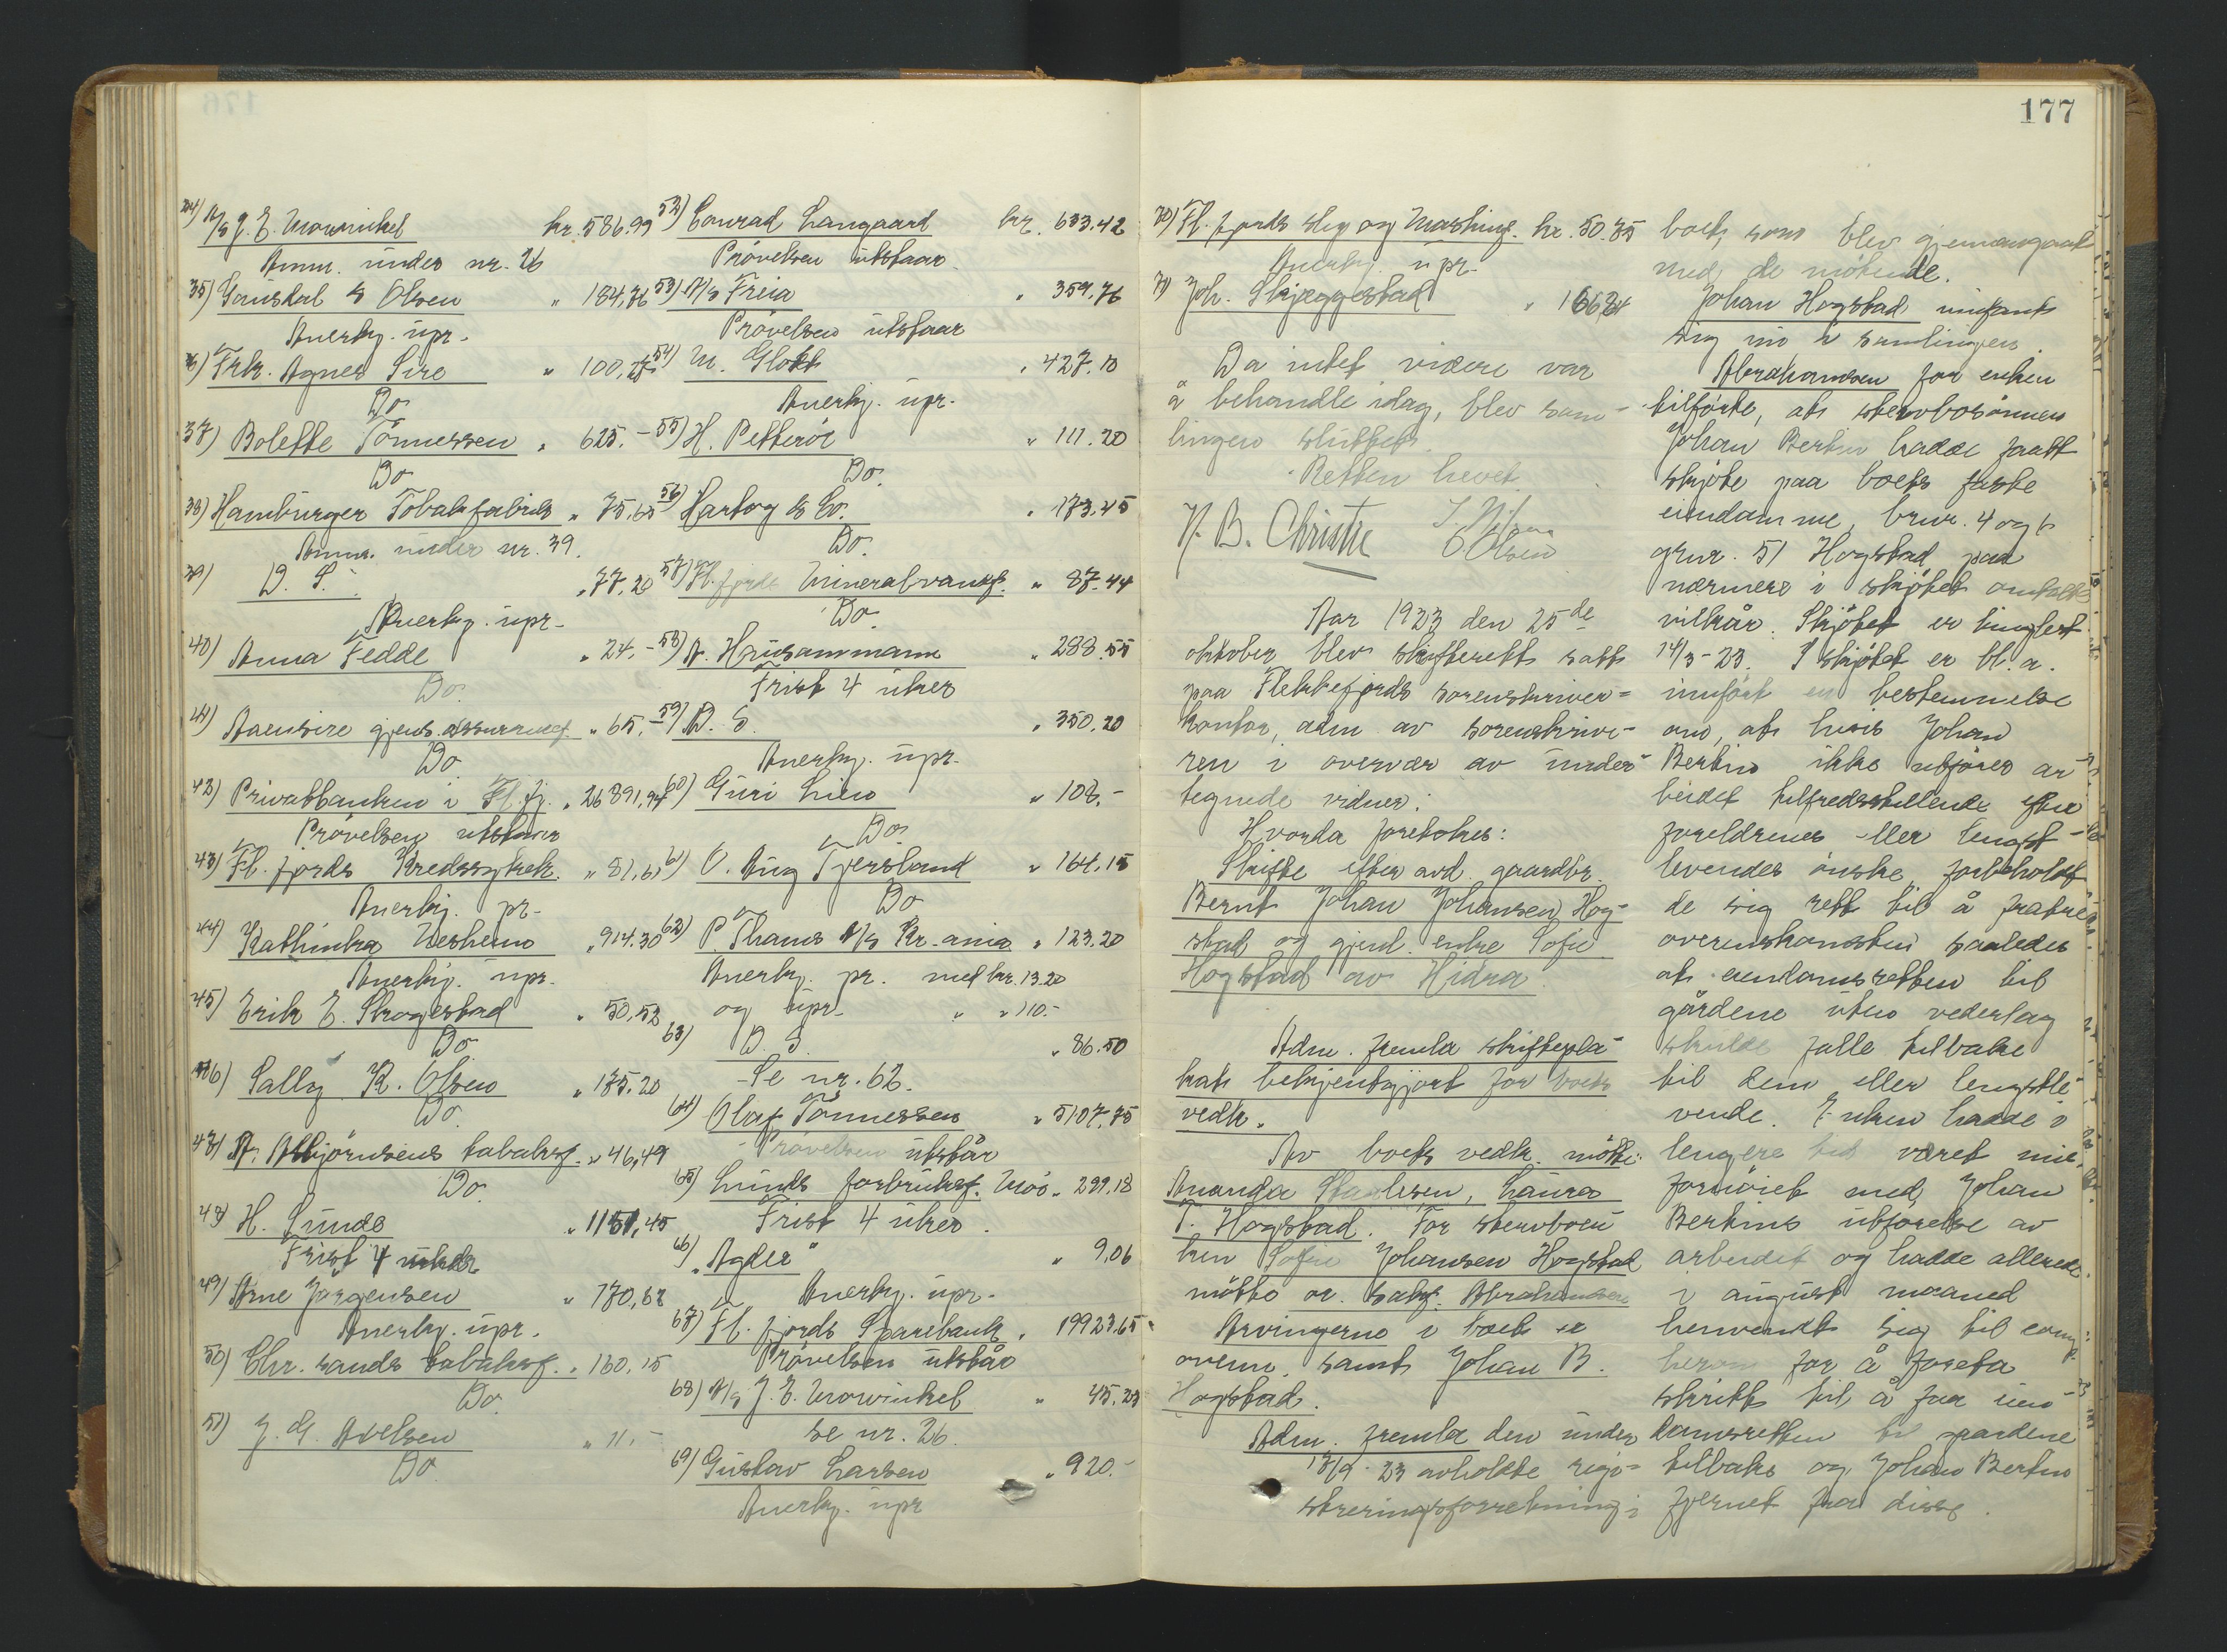 177
34) A/S J. E. Mowinckel kr. 586.99
Anm. under nr. 26
35) Gausdal & Olsen " 184,76
Anerkj. upr.
36) Frk. Agnes Sire " 100,75
Do
37) Bolette Tönnessen " 625.-
Do
38) Hamburger Tobakfabrik " 75,65
Anm. under nr. 39.
39) D. S. " 77,20
Anerkj. upr.
40) Anna Fedde " 24,-
Do.
41) Aaensire gjens. assurancef. " 65,-
Do
42) Privatbanken i Fl.fj. " 26891,94
Prövelsen utstaar
43) Fl.fjords Kredssykek. " 81,65
Anerkj. pr.
44) Kathinka Nesheim " 914.30
Anerkj. upr.
45) Erik E. Skogestad " 50,52
Do
46) Sally K. Olsen " 135.20
Do.
47) A. Asbjörnsens tabaksf. " 46,49
Do.
48) H. Lunde " 1151,45
Frist 4 uker
49) Arne Jörgensen " 170,62
Anerkj. upr.
50) Chr.sands tabaksf. " 160,15
Do.
51) J. G. Axelsen " 11.-
Do
52) Conrad Langaard kr. 633.42
Prövelsen utstaar
53) A/S Freia " 359,76
Prövelsen utstaar
54) M. Glott " 427.10
Anerkj. upr.
55) H. Petterøe " 111.20
Do.
56) Hartog & Co. " 173.45
Do.
57) Fl.fjords Mineralvannf. " 87.44
Do.
58) A. Hausammann " 288.55
Frist 4 uker
59) D. S. " 350.20
Anerkj. upr.
60) Guri Lien " 108.-
Do.
61) O. Aug Tjersland " 164,15
Do
62) P. Thams A/S Kr.ania " 123.20
Anerkj. pr. med kr. 13.20
og upr. " " 110.-
63) D. S. " 86.50
Se nr. 62.
64) Olaf Tönnessen " 5107,75
Prövelsen utstår
65) Lunds forbruksf. Moi " 299,18
Frist 4 uker.
66) "Agder" " 9,06
Anerkj. upr.
67) Fl.fjords Sparebank " 19923.65
Prövelsen utstår
68) A/S J. E. Mowinckel " 45,23
se nr. 26.
69) Gustav Larsen " 920.-
Anerkj. upr
70) Fl.fjords slip og Maskinf. kr. 50.35
Anerkj. upr.
71) Joh. Skjeggestad " 166,34
Da intet videre var
å behandle idag, blev sam-
lingen sluttet.
Retten hevet.
N. B. Christie
O Olsen
Aar 1923 den 25de
oktober blev skifterett satt
paa Flekkefjords sorenskriver-
kontor, adm av sorenskrive-
ren i overvær av under-
tegnede vidner:
Hvorda foretokes:
Skifte efter avd. gaardbr.
Bernt Johan Johansen Hog-
stad og gjenl. enke Sofie
Hogstad av Hidra.
Adm. fremla skiftepla-
kat bekjentgjort for boets
vedk.
Av boets vedk. mötte:
Ananda Staalesen, Laura
T. Hogstad. For stervboen-
ken Sofie Johansen Hogstad
mötte o.r. sakf. Abrahamsen
Arvingerne i boet er
ovenn. samt Johan B.
Hogstad.
Adm. fremla den under
18/9-23 avholdte regi-
streringsforretning i
boet, som blev gjennemgaat
med de mötende.
Johan Hogstad innfant
sig nu i samlingen.
Abrahamsen for enken
tilförte, at stervbosönnen
Johan Bertin hadde faatt
skjöte paa boets faste
eiendomme, brnr. 4 og 6
grnr. 51 Hogstad paa
nærmere i skjötet omtalte
vilkår. Skjötet er tinglest
14/3-23. I skjötet er bl.a.
innfört en bestemmelse
om, at hvis Johan
Bertin ikke utförer ar-
beidet tilfredsstillende efter
foreldrenes eller lengst-
levendes önske, forbeholdt
de sig rett til å fratre
overenskomsten saaledes
at eiendomsretten til
gårdene uten vederlag
skulde falle tilbake
til dem eller lengstle-
vende. Enken hadde i
lengere tid været mis-
fornöiet med Johan
Bertins utförelse av
arbeidet og hadde allerede
i august maaned
henvendt sig til comp.
herom for å foreta
skritt til å faa eien-
domsretten til gaardene
tilbake og Johan Bertin
fjernet fra disse.